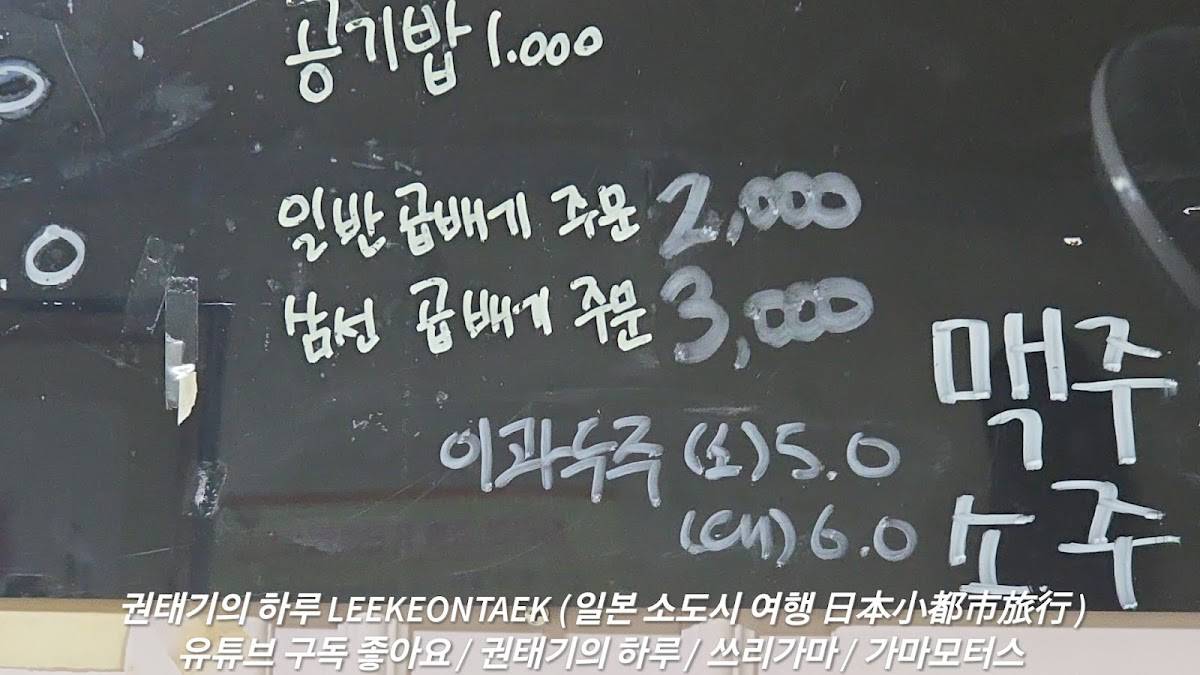 공기밥 1.000
일반 곱배기 주문 2,000
삼선 곱배기 주문 3,000
이과두주 (소) 5.0
(대) 6.0
맥주
소주
권태기의 하루 LEEKEONTAEK ( 일본 소도시 여행 日本小都市旅行 )
유튜브 구독 좋아요 / 권태기의 하루 / 쓰리가마 / 가마모터스